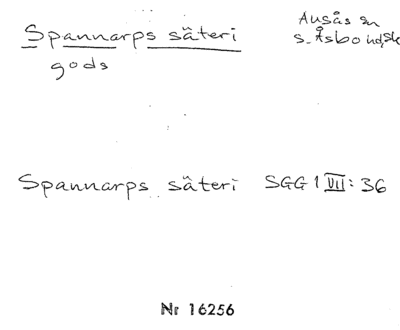 Spannarps säteri
gods
Ausås sn
S. Åsbo hd, Sk
Spannarps säteri SGG 1 VII: 36
Nr 16256